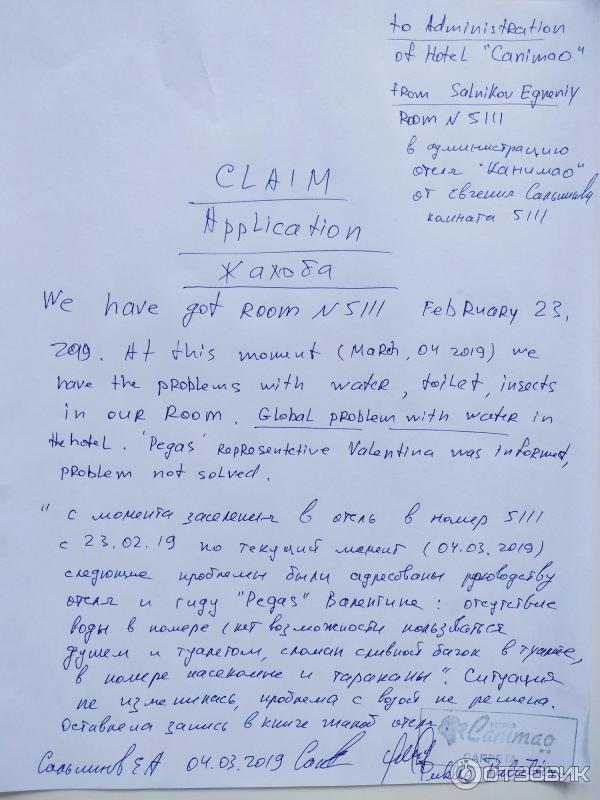 to Administration
of Hotel "Canimao"
from Salnikov Egveniy
Room N 5111
в администрацию
отеля "Канимао"
от Евгения
комната 5111
CLAIM
Application
Жахоба
We have got room N 5111 February 23,
2019. At this moment (March, 04 2019) we
have the problems with water, toilet, insects
in our room. Global problem with water in
the hotel. 'Pegas' representetive Valentina was informed,
problem not solved.
" с момента заселения в отель в номер 5111
с 23.02.19 по текущий момент (04.03.2019)
следующие проблемы были адресованы руководству
отеля и гиду "Pegas" Валентине: отсутствие
воды в номере (нет возможности пользоваться
душем и туалетом, сломан сливной бачок в туалете,
в номере насекомые и тараканы". Ситуация
не изменилась, проблема с водой не решена.
Оставлена запись в книге жалоб отеля
Canimao
04.03.2019
Public
ОТЗОВИК